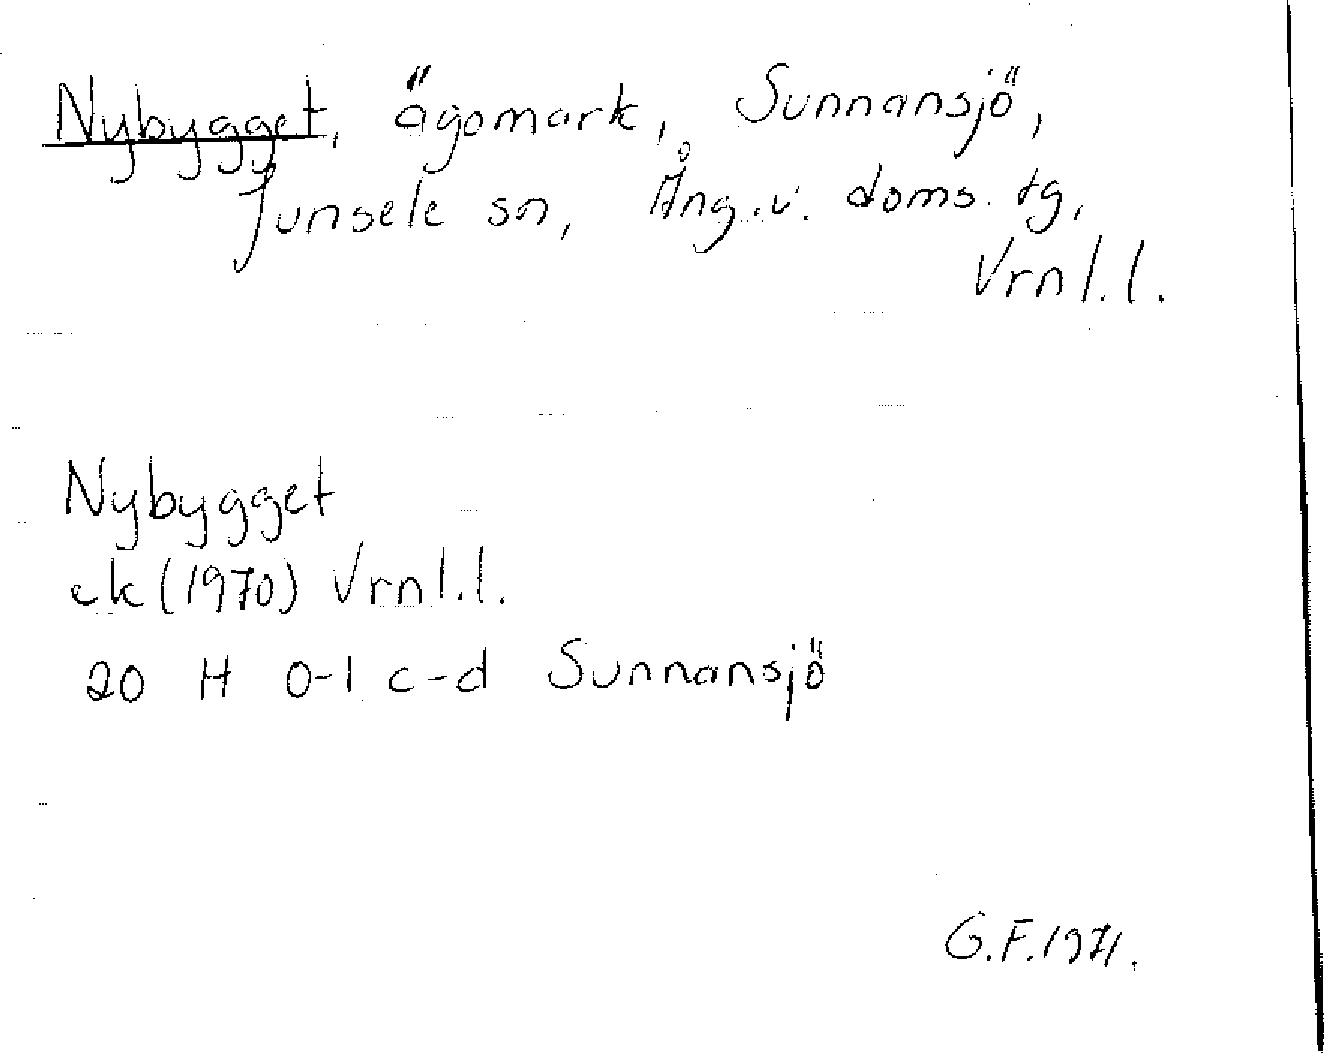 Nybygget, ägomark, Sunnansjö,
Junsele sn, Ång.v. doms. tg,
Vrnl.l.
Nybygget
ek (1970) Vrnl.l.
20 H 0-1 c-d Sunnansjö
G.F.1971.